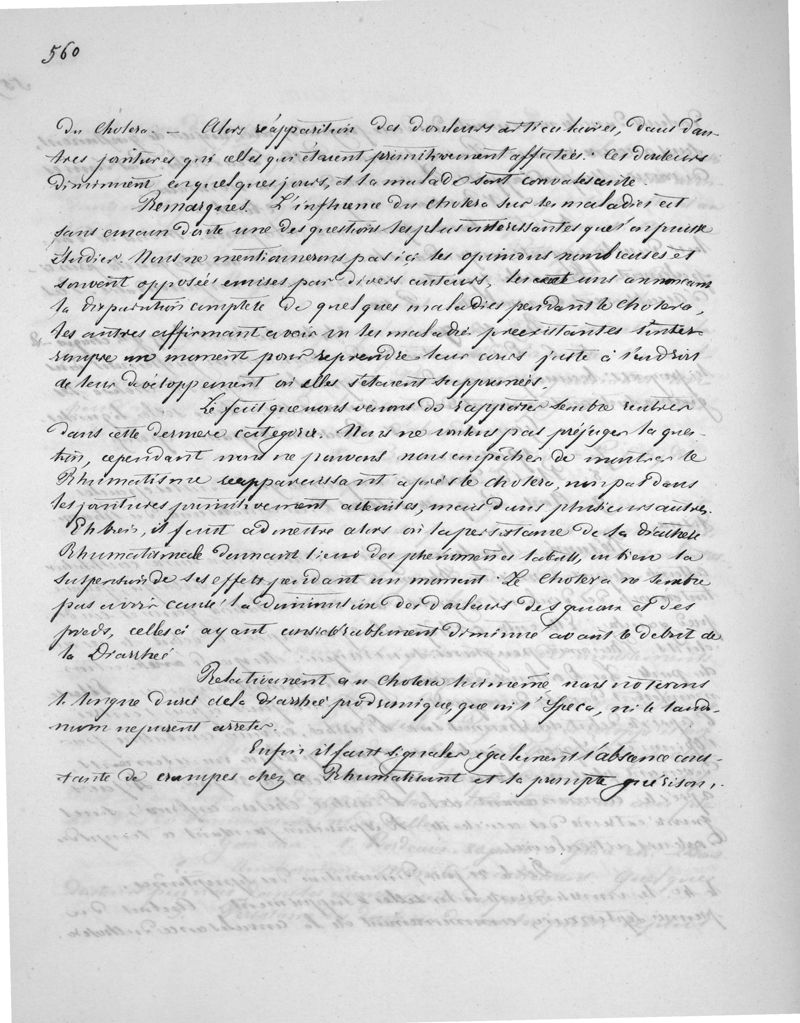 560
du Choléra. — Alors réapparition des douleurs articulaires, dans d'au-
tres jointures que celles qui étaient primitivement affectées. Ces douleurs
diminuent en quelques jours, et la malade sort convalescente.
Remarques. L'influence du choléra sur les maladies est
sans aucun doute une des questions les plus intéressantes que l'on puisse
étudier. Nous ne mentionnerons pas ici les opinions nombreuses et
souvent opposées émises par divers auteurs, les uns annonçant
la disparution complète de quelques maladies pendant le choléra,
les autres affirmant avoir vu les maladies préexistantes s'inter-
rompre un moment pour reprendre leur cours juste à l'endroit
de leur développement où elles s'étaient supprimées.
Le fait que nous venons de rapporter semble rentrer
dans cette dernière catégorie. Nous ne voulons pas préjuger la ques-
tion, cependant nous ne pouvons nous empêcher de montrer le
Rhumatisme réapparaissant après le choléra, non pas dans
les jointures primitivement atteintes, mais dans plusieurs autres.
Eh bien, il faut admettre alors ou la persistance de la diathèse
Rhumatismale donnant lieu à des phénomènes latents, ou bien la
suspension de ses effets pendant un moment. Le Choléra ne semble
pas avoir causé la diminution des douleurs des genoux et des
pieds, celles-ci ayant considérablement diminué avant le début de
la Diarrhée
Relativement au Choléra lui même nous noterons
la longue durée de la diarrhée prodromique, que ni l'Ipeca, ni le laud-
num ne purent arrêter.
Enfin il faut signaler également l'absence cons-
tante de crampes chez ce Rhumatisant et la prompte guérison,